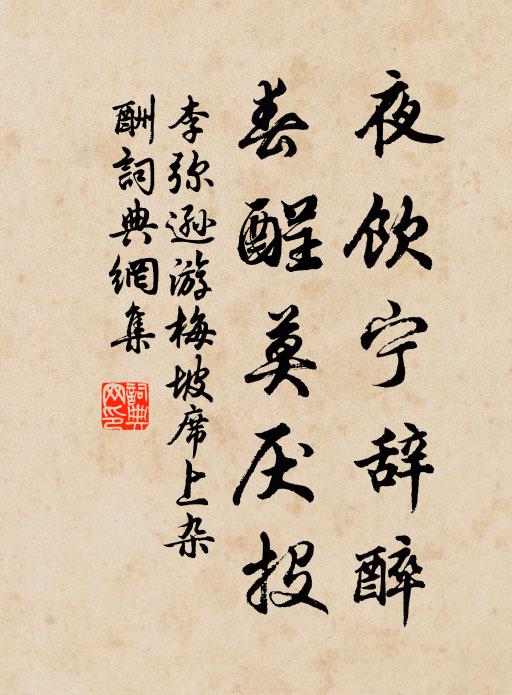 夜饮宁辞醉
春酲莫厌投
李弥逊游梅坡席上杂
酬词典網集
詞典网印